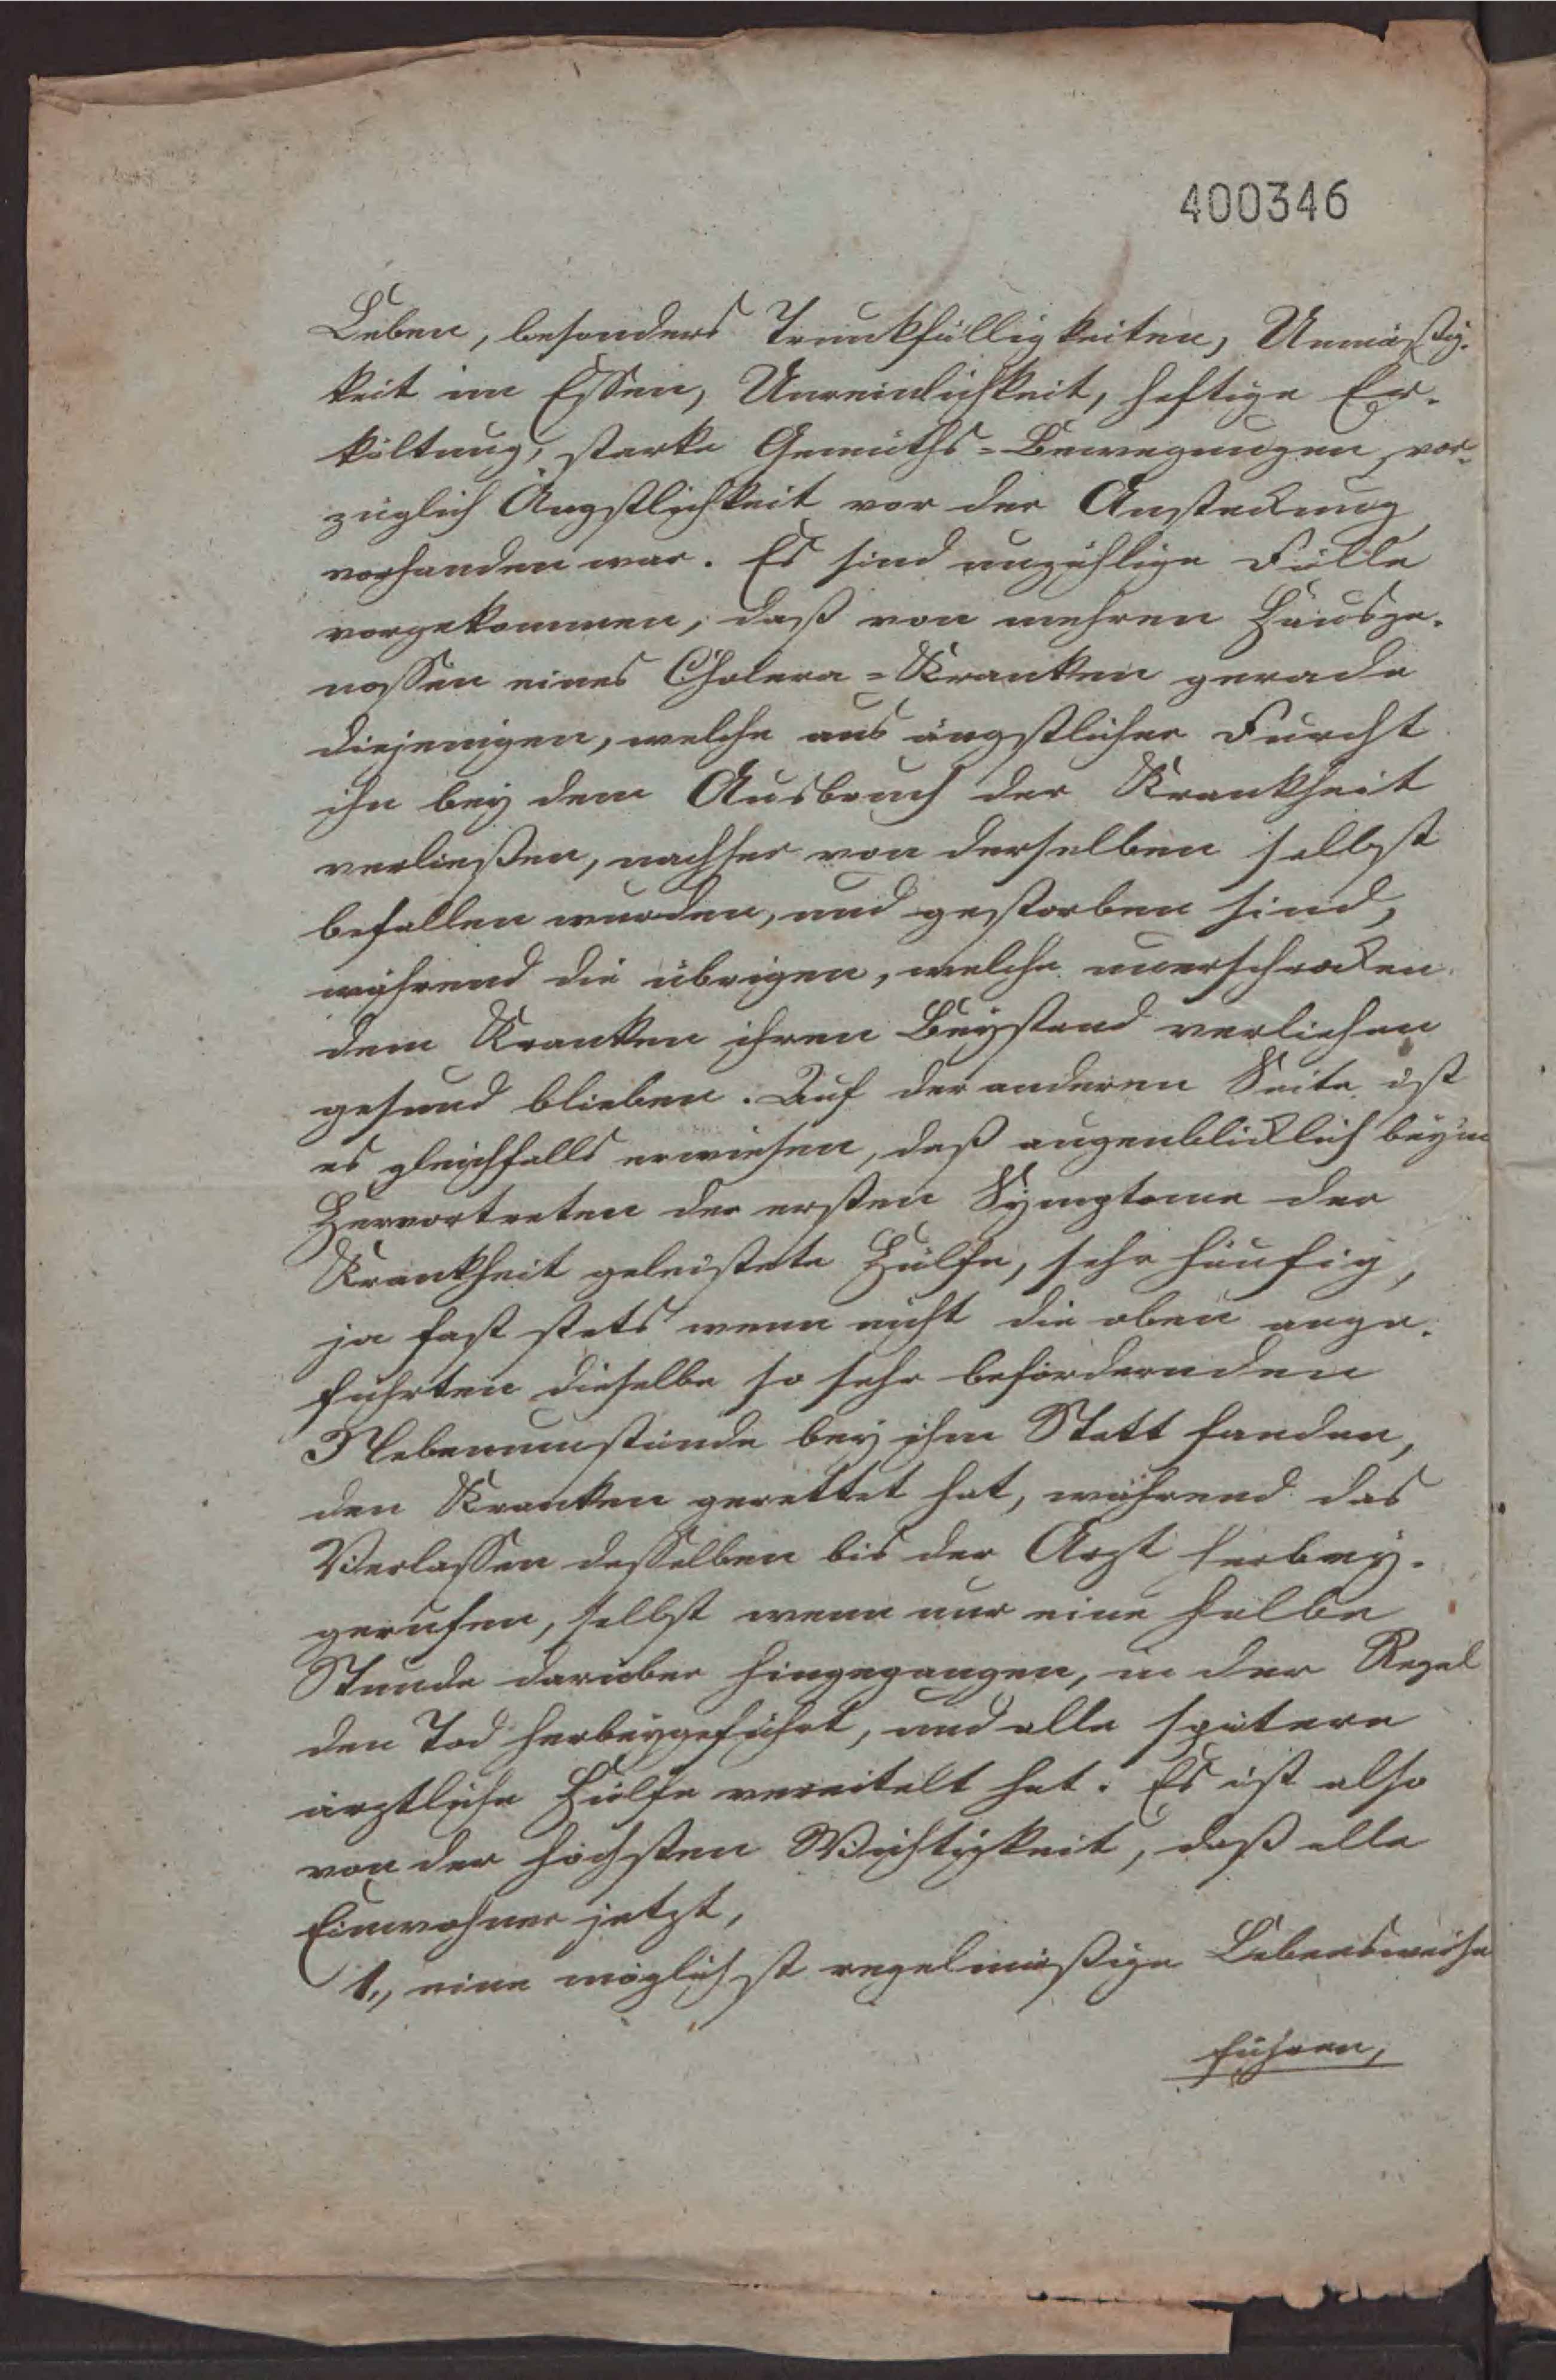 400346
Leben, besonders Trunkfälligkeiten, Unmäßig-
keit im Essen, Unreinlichkeit, heftige Er-
kältung, starke Gemüths-Bewegungen, vor-
züglich Ängstlichkeit vor der Ansteckung
vorhanden war. Es sind unzählige Fälle
vorgekommen, daß von mehren Hausge-
nossen eines Cholera-Kranken gerade
diejenigen, welche aus ängstlicher Furcht
ihn bey dem Ausbruch der Krankheit
verließen, nachher von derselben selbst
befallen wurden, und gestorben sind,
während die übrigen, welche unerschrocken
dem Kranken ihren Beystand verliehen
gesund blieben. Auf der anderen Seite ist
es gleichfalls erwiesen, daß augenblicklich beym
Hervortreten der ersten Symptome der
Krankheit geleistete Hülfe, sehr häufig,
ja fast stets wenn nicht die oben ange-
führten dieselbe so sehr befördernden
Nebenumstände bey ihm Statt fanden,
den Kranken gerettet hat, während das
Verlassen desselben bis der Arzt herbey-
gerufen, selbst wenn nur eine halbe
Stunde darüber hingegangen, in der Regel
den Tod herbeygeführt, und alle spätere
ärztliche Hülfe vereitelt hat. Es ist also
von der höchsten Wichtigkeit, daß alle
Einwohner jetzt,
1., eine möglichst regelmäßige Lebensweise
führen,